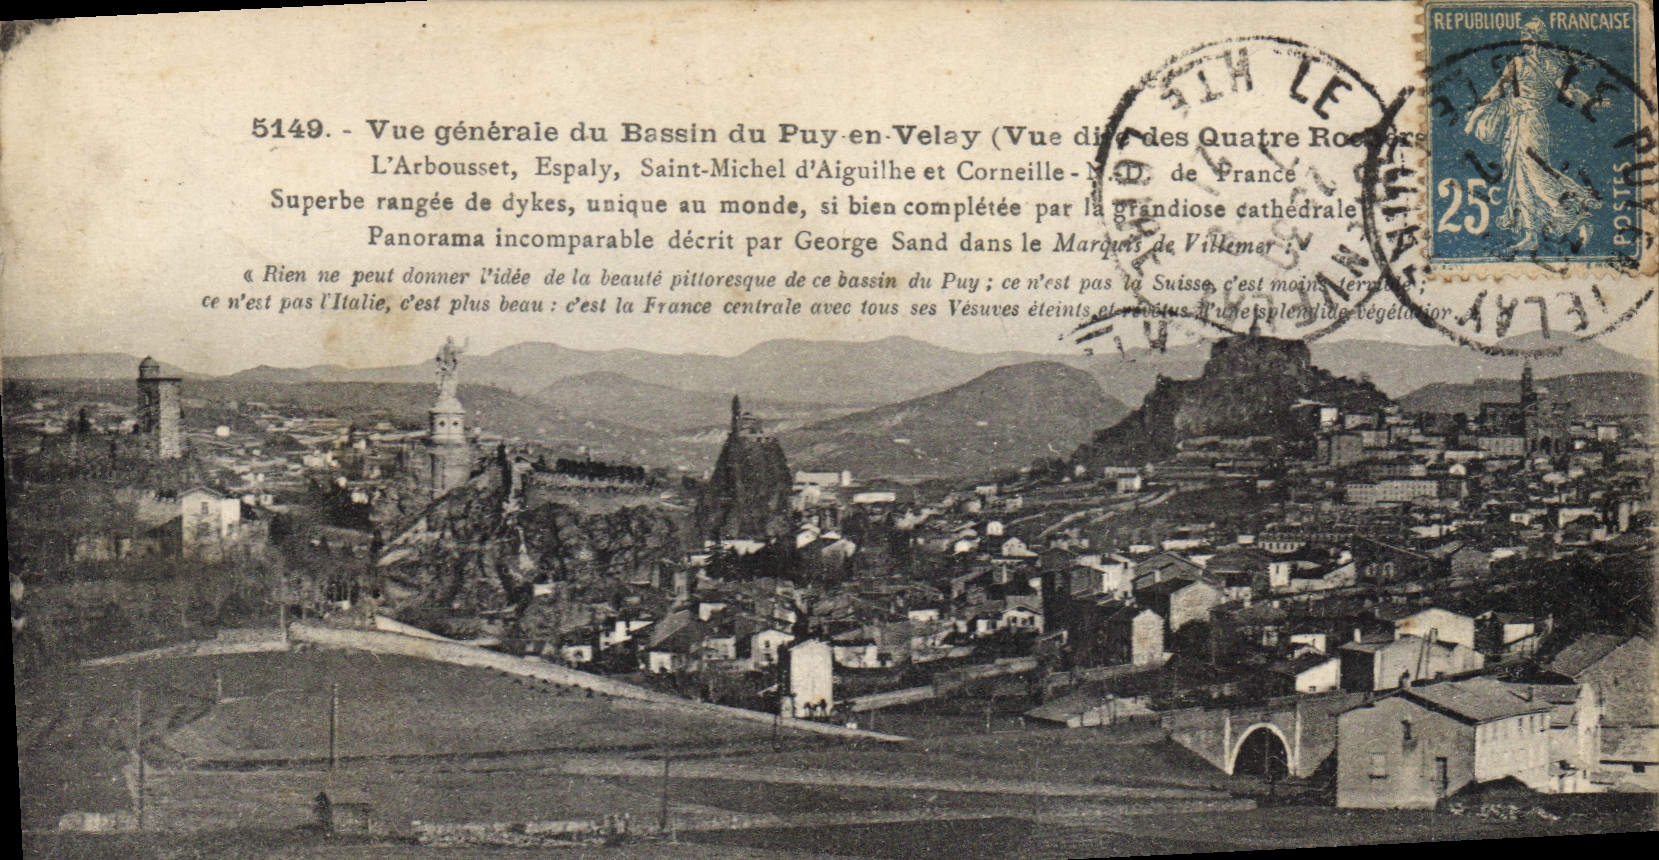 5149. - Vue générale du Bassin du Puy-en-Velay (Vue dite des Quatre Rochers
L'Arbousset, Espaly, Saint-Michel d'Aiguilhe et Corneille - N.-D. de France
Superbe rangée de dykes, unique au monde, si bien complétée par la grandiose cathédrale
Panorama incomparable décrit par George Sand dans le Marquis de Villemer :
« Rien ne peut donner l'idée de la beauté pittoresque de ce bassin du Puy ; ce n'est pas la Suisse, c'est moins terrible ;
ce n'est pas l'Italie, c'est plus beau : c'est la France centrale avec tous ses Vésuves éteints et revêtus d'une splendide végétation. »
REPUBLIQUE FRANÇAISE
25c
POSTES
LE PUY
HTE
VELAY
LE PUY
HTE
VELAY